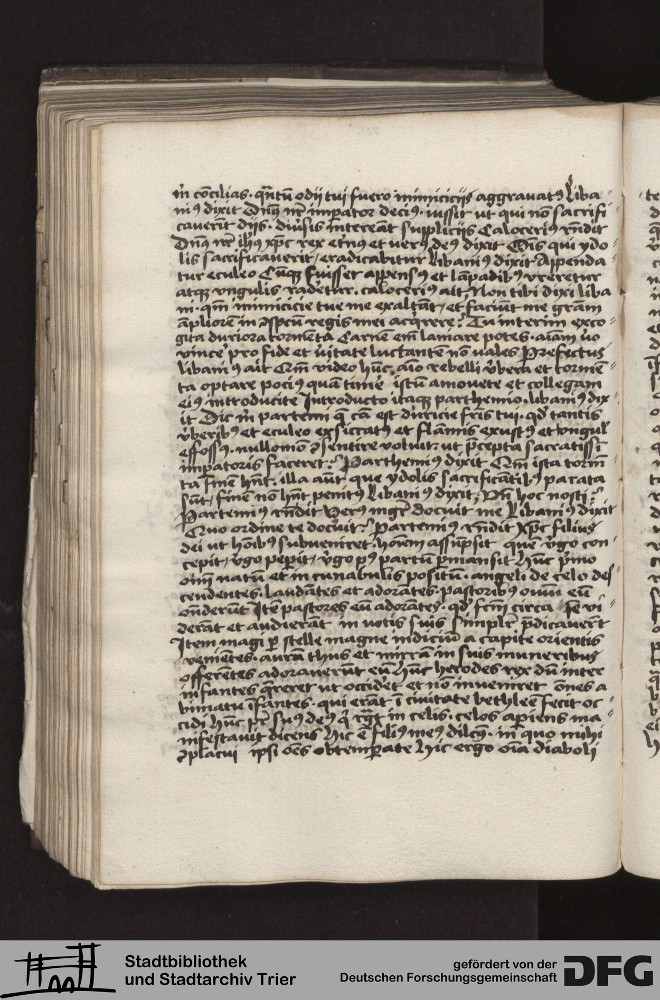 m̄ cōcilias · qn̄tū odij tui fuero inimicicijs aggravatꝰ Liba
niꝰ dixit Dn̄s nr̄ imperator deciꝰ · iussit ut qui nō sacrifi
caverit dijs · diūsis intereāt supplicijs Caloceriꝰ rn̄dit
Dn̄s nr̄ ihūs xp̄c rex et̄nꝰ et verꝰ deꝰ dixit Om̄s qui ydo
lis sacrificaverit / eradicabitur Libaniꝰ dixit Appenda
tur eculeo Cūqꝫ fuisset appensꝰ et lāpadibꝰ ureretur
atqꝫ ungulis radetur · caloceriꝰ ait Non tibi dixi liba
ni · qm̄ inimicicie tue me exaltāt / et faciūt me grām
āpliorē in ɔspcū regis mei acqrere : Tu interim exco
gita duriora tormēta Carnem em̄ laniare potes · aīam ūo
vince pro fide et ūitate luctantē nō vales Prefectus
libaniꝰ ait Qm̄ video hūc aīo rebelli v̄bera et tormē
ta optare pociꝰ quā timē istū amovete et collegam
eiꝰ introducite Introducto itaqꝫ parthemio · libaniꝰ dix
it Dic m̄ partemi q̄ cā est duricie fr̄is tui · qd̄ tantis
v̄beribꝰ et eculeo exsiccatꝰ et flām̄is exustꝰ et ungul
effossꝰ · nullomō ɔsentire voluit · ut p̄cepta sacratissī
imp̄atoris faceret : Parthemiꝰ dixit Qm̄ ista torm̄
ta finē hn̄t · illa aūt que ydolis sacrificātibꝰ parata
sūt / finē nō hn̄t penitꝰ Libaniꝰ dixit Vn̄ hoc nosti :
Partemiꝰ rn̄dit Verꝰ mgr̄ docuit me Libaniꝰ dixit
Quo ordine te docuit : Partemiꝰ rn̄dit xp̄c filius
dei ut hoībꝰ subveniret · hoīem assūpsit que v̄go con
cepit / v̄go pep̄it / v̄go pꝰ partū p̄mansit hūc p̄mo
oīm natū et in cunabulis positū · angeli de celo des
cendentes · laudātes et adorātes · pastoribꝰ oviū eū
on̄derūt Itē pastores eū adorātes · qd̄ fc̄m circa se vi
derāt et audierāt in votis suis simplr̄ p̄dicaverūt
Item magi p̄ stelle magne indiciū a capite orientis
venietes · aurū thus et mirrā in suis muneribus
offerētes adoraverūt eū hūc herodes rex dū inter
infantes q̄reret ut occid̄et et nō inveniret om̄es a
bimatu īfantes · qui erāt ī civitate bethleē fecit oc
cidi hūc pr̄ suꝰ deꝰ q̄ rgt in celis · celos apiens ma
nifestavit dicens hic ē filiꝰ meꝰ dilcs̄ · in quo mihi
ɔplacui ip̄si oēs obtemp̄ate hic ergo oīa diaboli
Stadtbibliothek
und Stadtarchiv Trier
gefördert von der
Deutschen Forschungsgemeinschaft
DFG